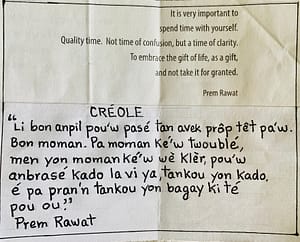 It is very important to
spend time with yourself.
Quality time. Not time of confusion, but a time of clarity.
To embrace the gift of life, as a gift,
and not take it for granted.
Prem Rawat
CRÉOLE
"Li bon anpil pou'w pasé tan avek prôp têt pa'w.
Bon moman. Pa moman ke'w twoublé,
men yon moman ké'w wè klêr, pou'w
anbrasé kado la vi ya, tankou yon kado,
é pa pran'n tankou yon bagay ki té
pou ou?"
Prem Rawat